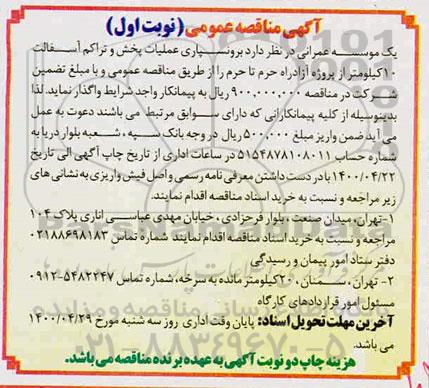 آگهی مناقصه عمومی (نوبت اول)
یک موسسه عمرانی در نظر دارد برونسپاری عملیات پخش و تراکم آسفالت
۱۰کیلومتر از پروژه آزادراه حرم تا حرم را از طریق مناقصه عمومی و با مبلغ تضمین
شرکت در مناقصه ۹۰۰,۰۰۰,۰۰۰ ریال به پیمانکار واجد شرایط واگذار نماید. لذا
بدینوسیله از کلیه پیمانکارانی که دارای سوابق مرتبط می باشند دعوت به عمل
می آید ضمن واریز مبلغ ۵۰۰,۰۰۰ ریال در وجه بانک سپه، شعبه بلوار دریا به
شماره حساب ۵۱۵۴۸۷۸۱۰۸۰۱۱ در ساعات اداری از تاریخ چاپ آگهی الی تاریخ
۱۴۰۰/۰۴/۲۲ با در دست داشتن معرفی نامه رسمی و اصل فیش واریزی به نشانی های
زیر مراجعه و نسبت به خرید اسناد مناقصه اقدام نمایند.
۱-تهران، میدان صنعت، بلوار فرحزادی، خیابان مهدی عباسی اناری پلاک ۱۰۴
مراجعه و نسبت به خرید اسناد مناقصه اقدام نمایند شماره تماس ۰۲۱۸۸۶۹۸۱۸۳
دفتر ستاد امور پیمان و رسیدگی
۲- تهران، سمنان، ۲۰کیلومتر مانده به سرخه، شماره تماس ۵۴۸۲۲۴۷-۰۹۱۲
مسئول امور قراردادهای کارگاه
آخرین مهلت تحویل اسناد: پایان وقت اداری روز سه شنبه مورخ ۱۴۰۰/۰۴/۲۹
می باشد.
هزینه چاپ دو نوبت آگهی به عهده برنده مناقصه می باشد.
ParsNamadData
۰۲۱-۸۸۳۴۹۶۷۰-۵